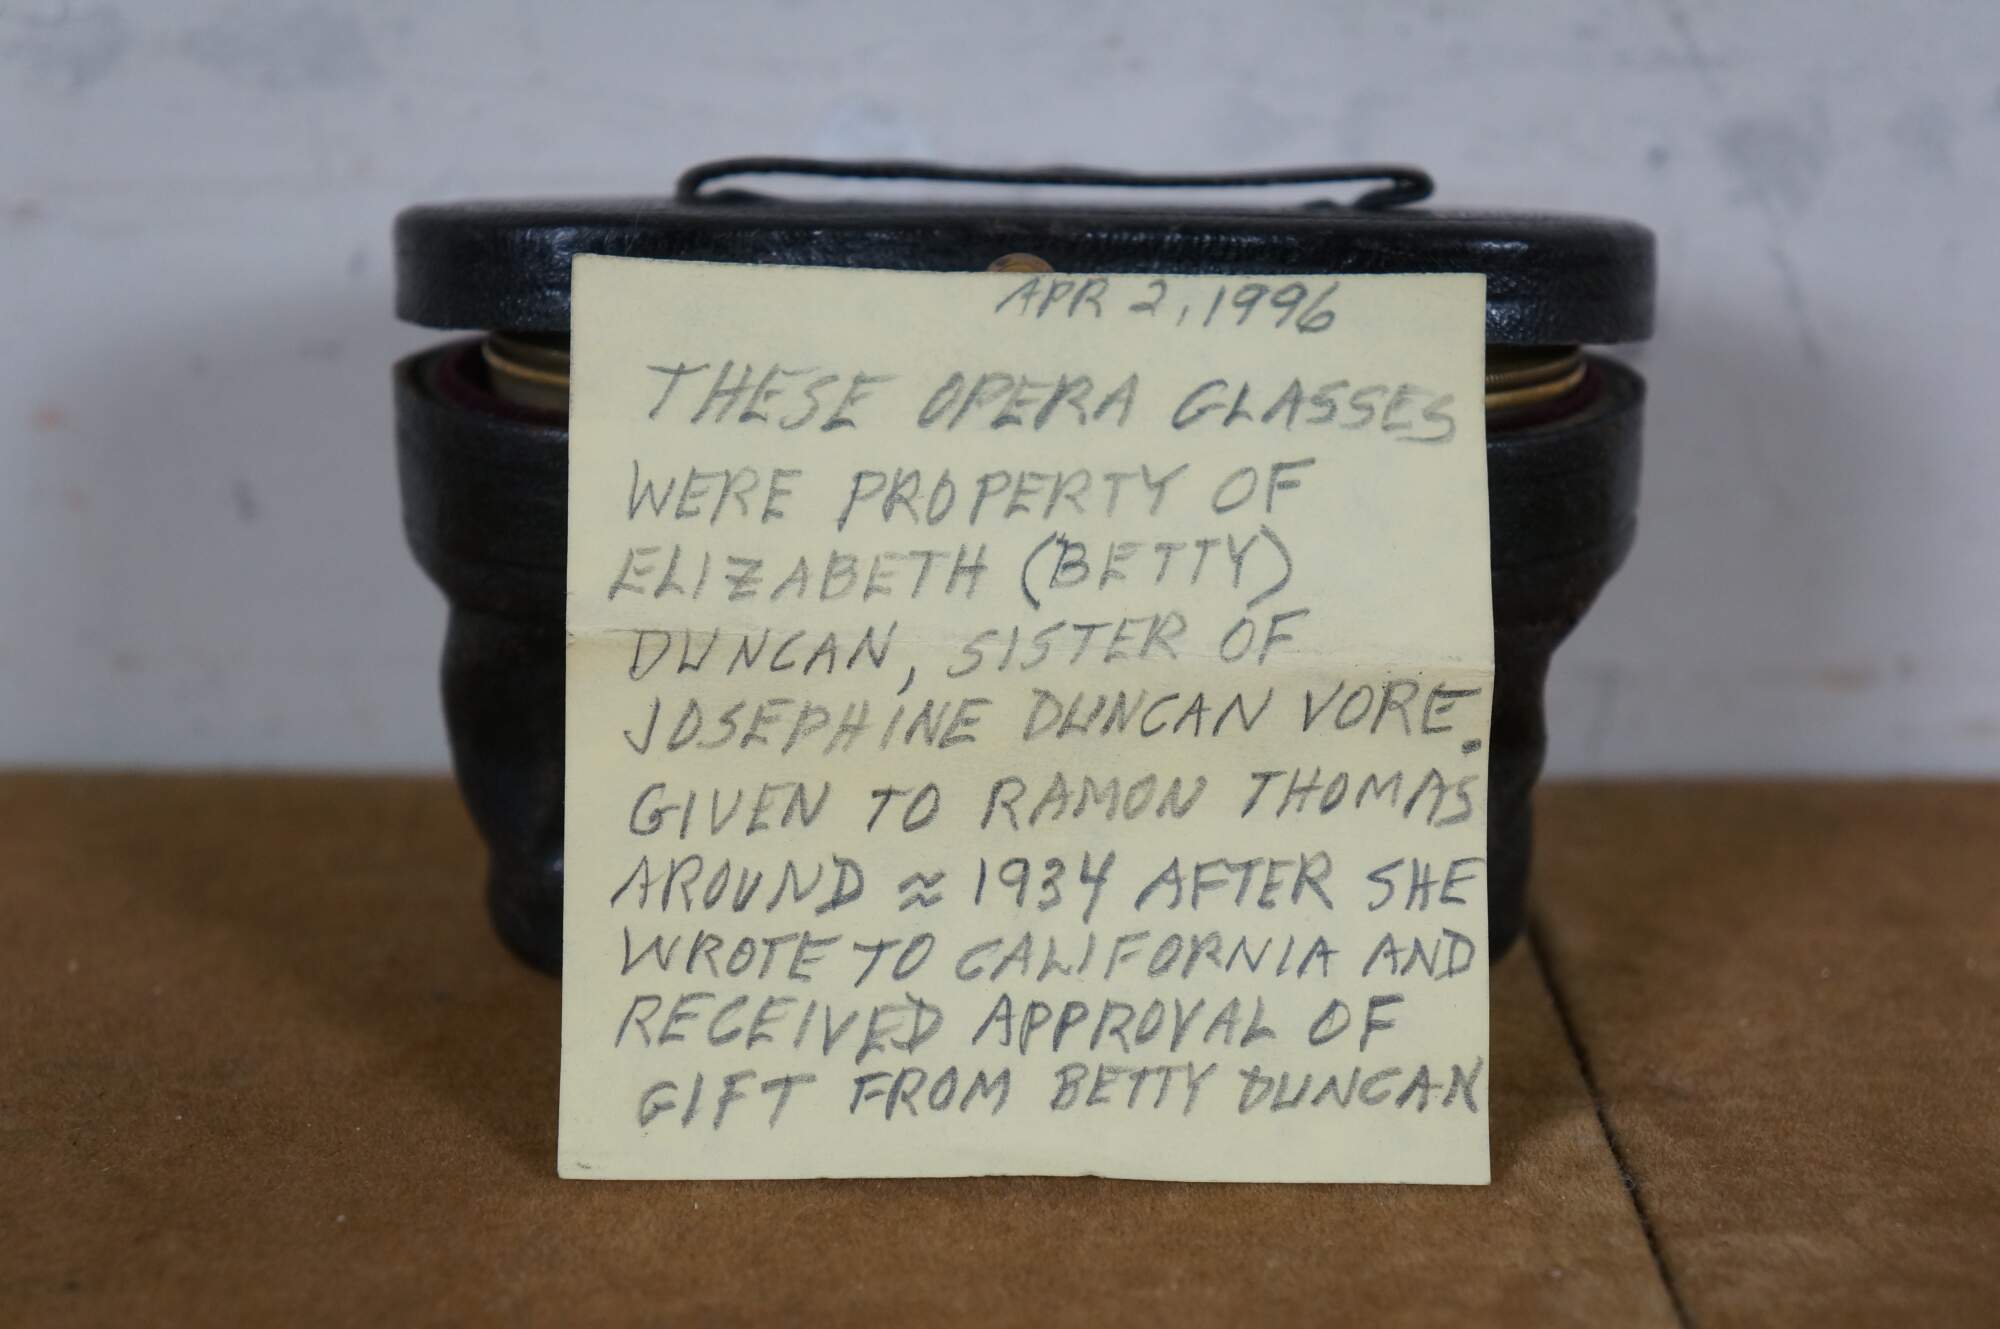 APR 2, 1996
THESE OPERA GLASSES
WERE PROPERTY OF
ELIZABETH (BETTY)
DUNCAN, SISTER OF
JOSEPHINE DUNCAN VORE.
GIVEN TO RAMON THOMAS
AROUND ≈ 1934 AFTER SHE
WROTE TO CALIFORNIA AND
RECEIVED APPROVAL OF
GIFT FROM BETTY DUNCAN